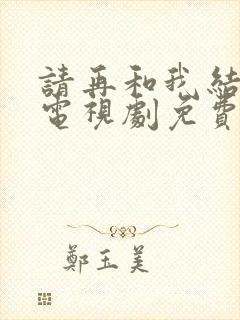 請再和我結
電視劇免費
鄭玉美